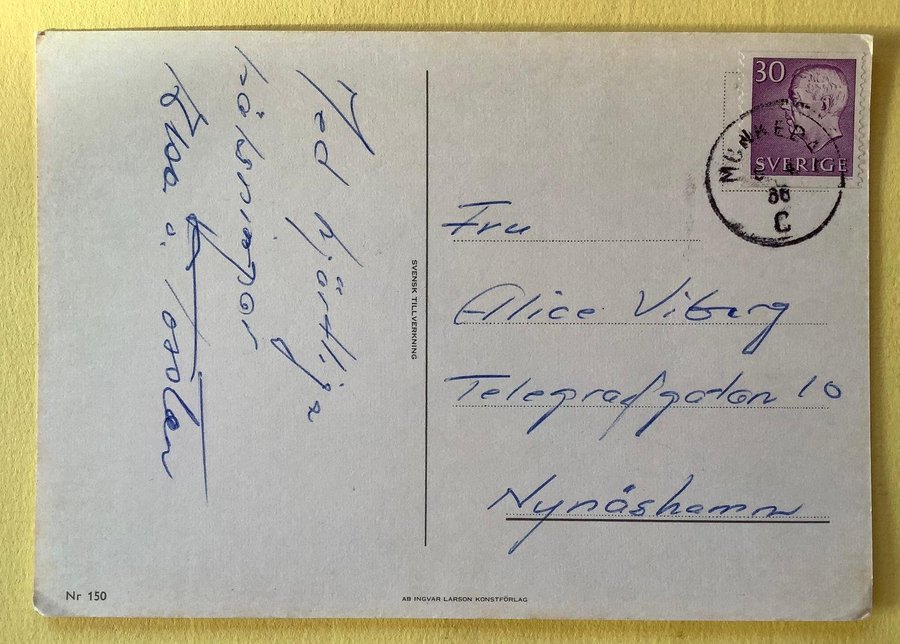 Med hjärtliga
hälsningar
Elsa o.
SVENSK TILLVERKNING
30
SVERIGE
MUNKEDAL
C
Fru
Alice Viberg
Telegrafgatan 10
Nynäshamn
Nr 150
AB INGVAR LARSON KONSTFÖRLAG